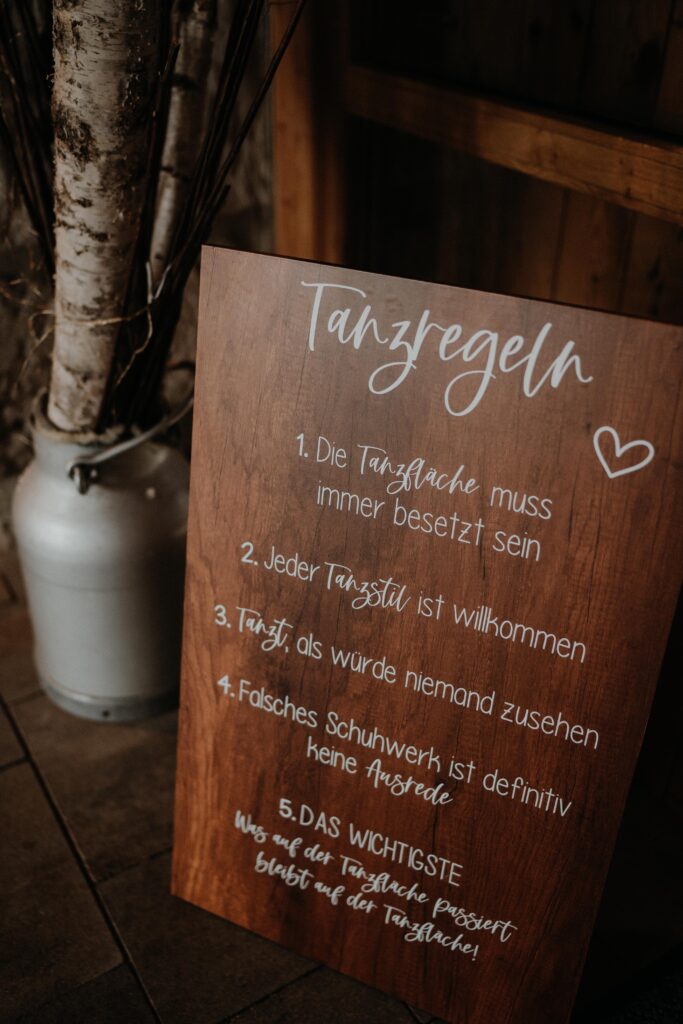 Tanzregeln
1. Die Tanzfläche muss
immer besetzt sein
2. Jeder Tanzstil ist willkommen
3. Tanzt, als würde niemand zusehen
4. Falsches Schuhwerk ist definitiv
keine Ausrede
5. DAS WICHTIGSTE
Was auf der Tanzfläche passiert
bleibt auf der Tanzfläche!